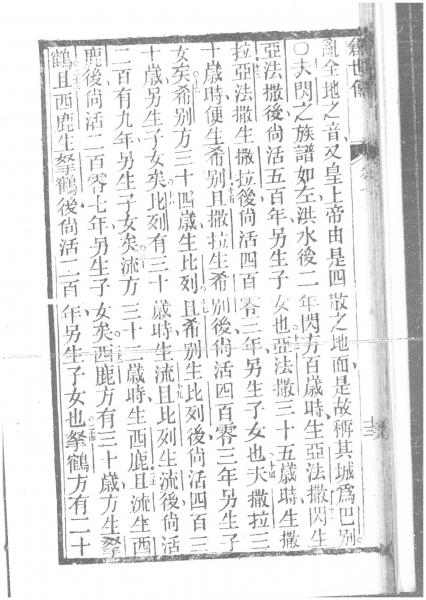 創世傳
亂全地之音又皇上帝由是四散之地面是故稱其城爲巴別
〇夫閃之族譜如左洪水後二年閃方百歲時生亞法撒閃生
亞法撒後尚活五百年另生子女也亞法撒三十五歲時生撒
拉亞法撒生撒拉後尚活四百零三年另生子女也夫撒拉三
十歲時便生希別且撒拉生希別後尚活四百零三年另生子
女矣希別方三十四歲生比列且希別生比列後尚活四百三
十歲另生子女矣比列有三十歲時生流且比列生流後尚活
二百有九年另生子女矣流方三十二歲時生西鹿且流生西
鹿後尚活二百零七年另生子女矣西鹿方有三十歲方生拏
鶴且西鹿生拏鶴後尚活二百年另生子女也拏鶴方有二十